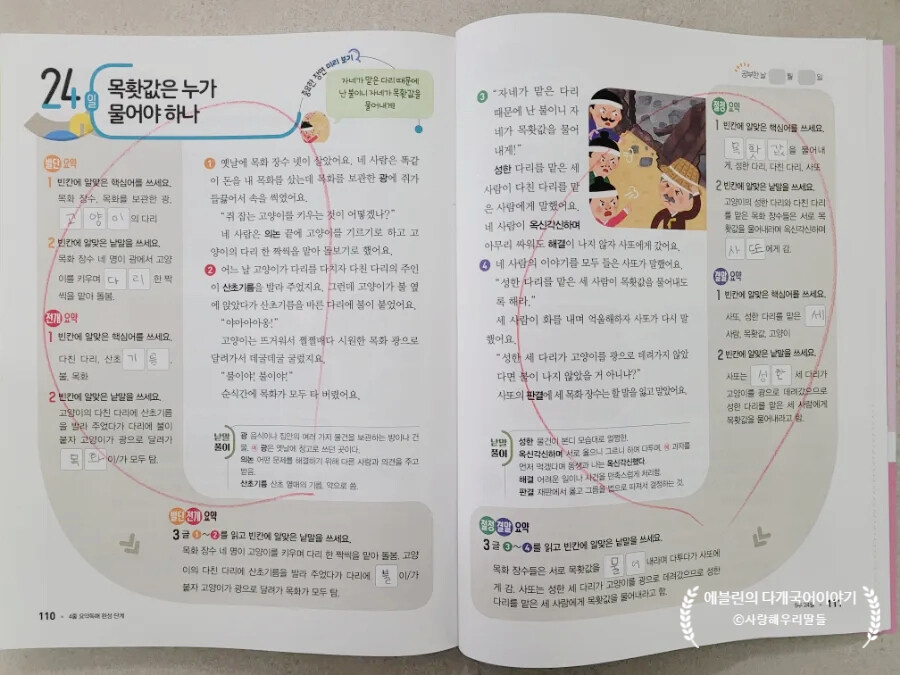 24일
목홧값은 누가
물어야 하나
중요한 장면 미리 보기
자네가 맡은 다리 때문에
난 불이니 자네가 목홧값을
물어내게!
발단 요약
1 빈칸에 알맞은 핵심어를 쓰세요.
목화 장수, 목화를 보관한 광,
고양이의 다리
2 빈칸에 알맞은 낱말을 쓰세요.
목화 장수 네 명이 광에서 고양
이를 키우며 다리 한 짝
씩을 맡아 돌봄.
전개 요약
1 빈칸에 알맞은 핵심어를 쓰세요.
다친 다리, 산초기름,
불, 목화
2 빈칸에 알맞은 낱말을 쓰세요.
고양이의 다친 다리에 산초기름
을 발라 주었다가 다리에 불이
붙자 고양이가 광으로 달려가
목화이/가 모두 탐.
1 옛날에 목화 장수 넷이 살았어요. 네 사람은 똑같
이 돈을 내 목화를 샀는데 목화를 보관한 광에 쥐가
들끓어서 속을 썩였어요.
“쥐 잡는 고양이를 키우는 것이 어떻겠나?”
네 사람은 의논 끝에 고양이를 기르기로 하고 고
양이의 다리 한 짝씩을 맡아 돌보기로 했어요.
2 어느 날 고양이가 다리를 다치자 다친 다리의 주인
이 산초기름을 발라 주었지요. 그런데 고양이가 불 옆
에 앉았다가 산초기름을 바른 다리에 불이 붙었어요.
“야아아아옹!”
고양이는 뜨거워서 펄쩍대다 시원한 목화 광으로
달려가서 데굴데굴 굴렀지요.
“불이야! 불이야!”
순식간에 목화가 모두 타 버렸어요.
낱말 풀이
광 음식이나 집안의 여러 가지 물건을 보관하는 방이나 건
물. 예 광은 옛날에 창고로 쓰던 곳이다.
의논 어떤 문제를 해결하기 위해 다른 사람과 의견을 주고
받음.
산초기름 산초 열매의 기름. 약으로 씀.
발단 전개 요약
3 글 1~2를 읽고 빈칸에 알맞은 낱말을 쓰세요.
목화 장수 네 명이 고양이를 키우며 다리 한 짝씩을 맡아 돌봄. 고양
이의 다친 다리에 산초기름을 발라 주었다가 다리에 불이/가
붙자 고양이가 광으로 달려가 목화가 모두 탐.
110 • 4주 요약독해 완성 단계
공부한 날 월 일
3 “자네가 맡은 다리
때문에 난 불이니 자
네가 목홧값을 물어
내게!”
성한 다리를 맡은 세
사람이 다친 다리를 맡
은 사람에게 말했어요.
네 사람이 옥신각신하며
아무리 싸워도 해결이 나지 않자 사또에게 갔어요.
4 네 사람의 이야기를 모두 들은 사또가 말했어요.
“성한 다리를 맡은 세 사람이 목홧값을 물어내도
록 해라.”
세 사람이 화를 내며 억울해하자 사또가 다시 말
했어요.
“성한 세 다리가 고양이를 광으로 데려가지 않았
다면 불이 나지 않았을 거 아니냐?”
사또의 판결에 세 목화 장수는 할 말을 잃고 말았어요.
절정 요약
1 빈칸에 알맞은 핵심어를 쓰세요.
목홧값을 물어내
게, 성한 다리, 다친 다리, 사또
2 빈칸에 알맞은 낱말을 쓰세요.
고양이의 성한 다리와 다친 다리
를 맡은 목화 장수들은 서로 목
홧값을 물어내라며 옥신각신하며
사또에게 감.
결말 요약
1 빈칸에 알맞은 핵심어를 쓰세요.
사또, 성한 다리를 맡은 세
사람, 목홧값, 고양이
2 빈칸에 알맞은 낱말을 쓰세요.
사또는 성한 세 다리가
고양이를 광으로 데려갔으므로
성한 다리를 맡은 세 사람에게
목홧값을 물어내라고 함.
낱말 풀이
성한 물건이 본디 모습대로 멀쩡한.
옥신각신하며 서로 옳으니 그르니 하며 다투며. 예 과자를
먼저 먹겠다며 동생과 나는 옥신각신했다.
해결 어려운 일이나 사건을 만족스럽게 처리함.
판결 재판에서 옳고 그름을 법으로 따져서 결정하는 것.
절정 결말 요약
3 글 3~4를 읽고 빈칸에 알맞은 낱말을 쓰세요.
목화 장수들은 서로 목홧값을 물어내라며 다투다가 사또에
게 감. 사또는 성한 세 다리가 고양이를 광으로 데려갔으므로 성한
다리를 맡은 세 사람에게 목홧값을 물어내라고 함.
에블린의 다개국어이야기
©사랑해우리딸들